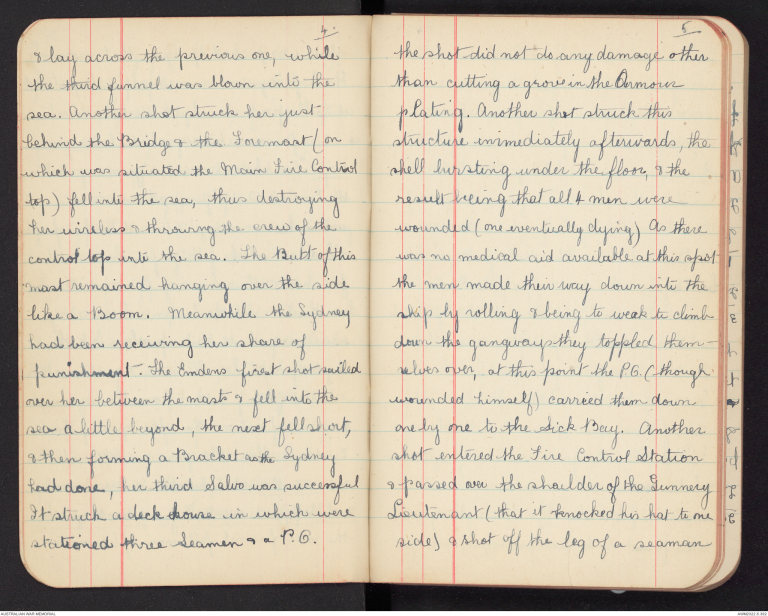 4
& lay across the previous one, while
the third funnel was blown into the
sea. Another shot struck her just
behind the Bridge & the Foremast (on
which was situated the Main Fire Control
top) fell into the sea, thus destroying
her wireless & throwing the crew of the
control top into the sea. The Butt of this
mast remained hanging over the side
like a Boom. Meanwhile the Sydney
had been receiving her share of
punishment. The Emdens first shot sailed
over her between the masts & fell into the
sea a little beyond, the next fell short,
& then forming a Bracket as the Sydney
had done, her third Salvo was successful
It struck a deck house in which were
stationed three Seamen & a P.O.
5
the shot did not do any damage other
than cutting a grove in the Armour
plating. Another shot struck this
structure immediately afterwards, the
shell bursting under the floor, & the
result being that all 4 men were
wounded (one eventually dying) As there
was no medical aid available at this spot
the men made their way down into the
ship by rolling & being to weak to climb
down the gangways they toppled them-
selves over, at this point the P.O. (though
wounded himself) carried them down
one by one to the Sick Bay. Another
shot entered the Fire Control Station
& passed over the shoulder of the Gunnery
Lieutenant (that it knocked his hat to one
side) & shot off the leg of a seaman
AUSTRALIAN WAR MEMORIAL